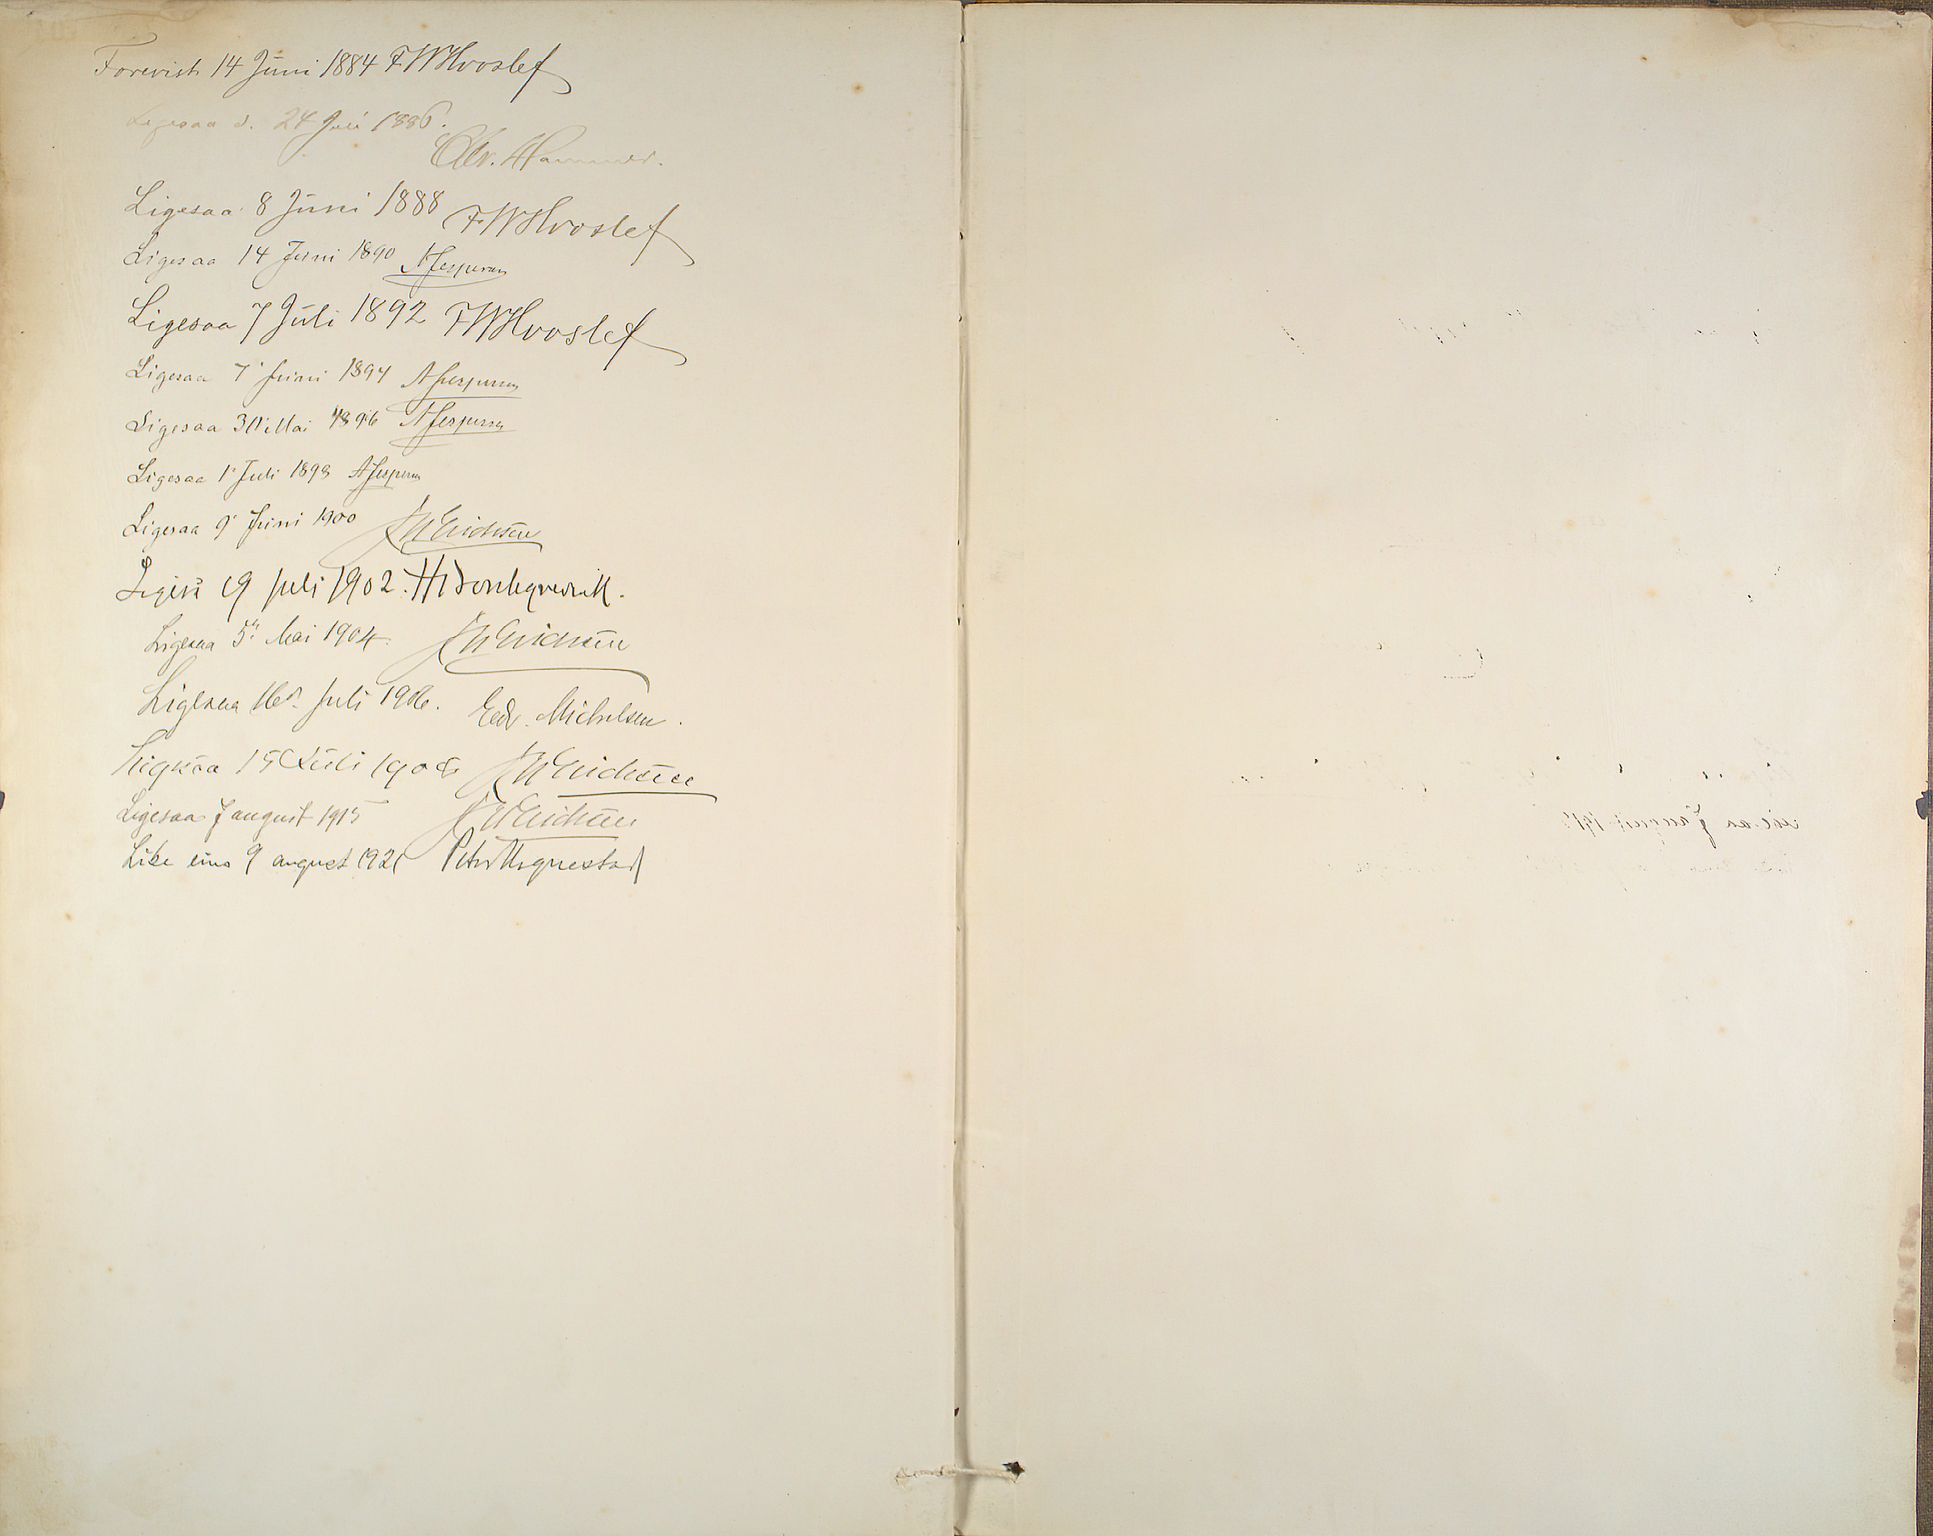 Forevist 14 Juni 1884 FWHvoslef
Ligesaa d. 24 Juli 1886.
Chr. Hammer.
Ligesaa 8 Juni 1888 FWHvoslef
Ligesaa 14 Juni 1890 AJespersen
Ligesaa 7 Juli 1892 FWHvoslef
Ligesaa 7' Juni 1894 AJespersen
Ligesaa 30' Mai 1896 AJespersen
Ligesaa 1' Juli 1898 AJespersen
Ligesaa 9' Juni 1900 Erichsen
19 Juli 1902.
Ligesaa 5te Mai 1904. Erichsen
Ligesaa 16de Juli 1906. Edv. Michelsen.
Ligesaa 15 Juli 1908 Erichsen
Ligesaa 7 august 1915 Erichsen
Like eins 9 august 1921